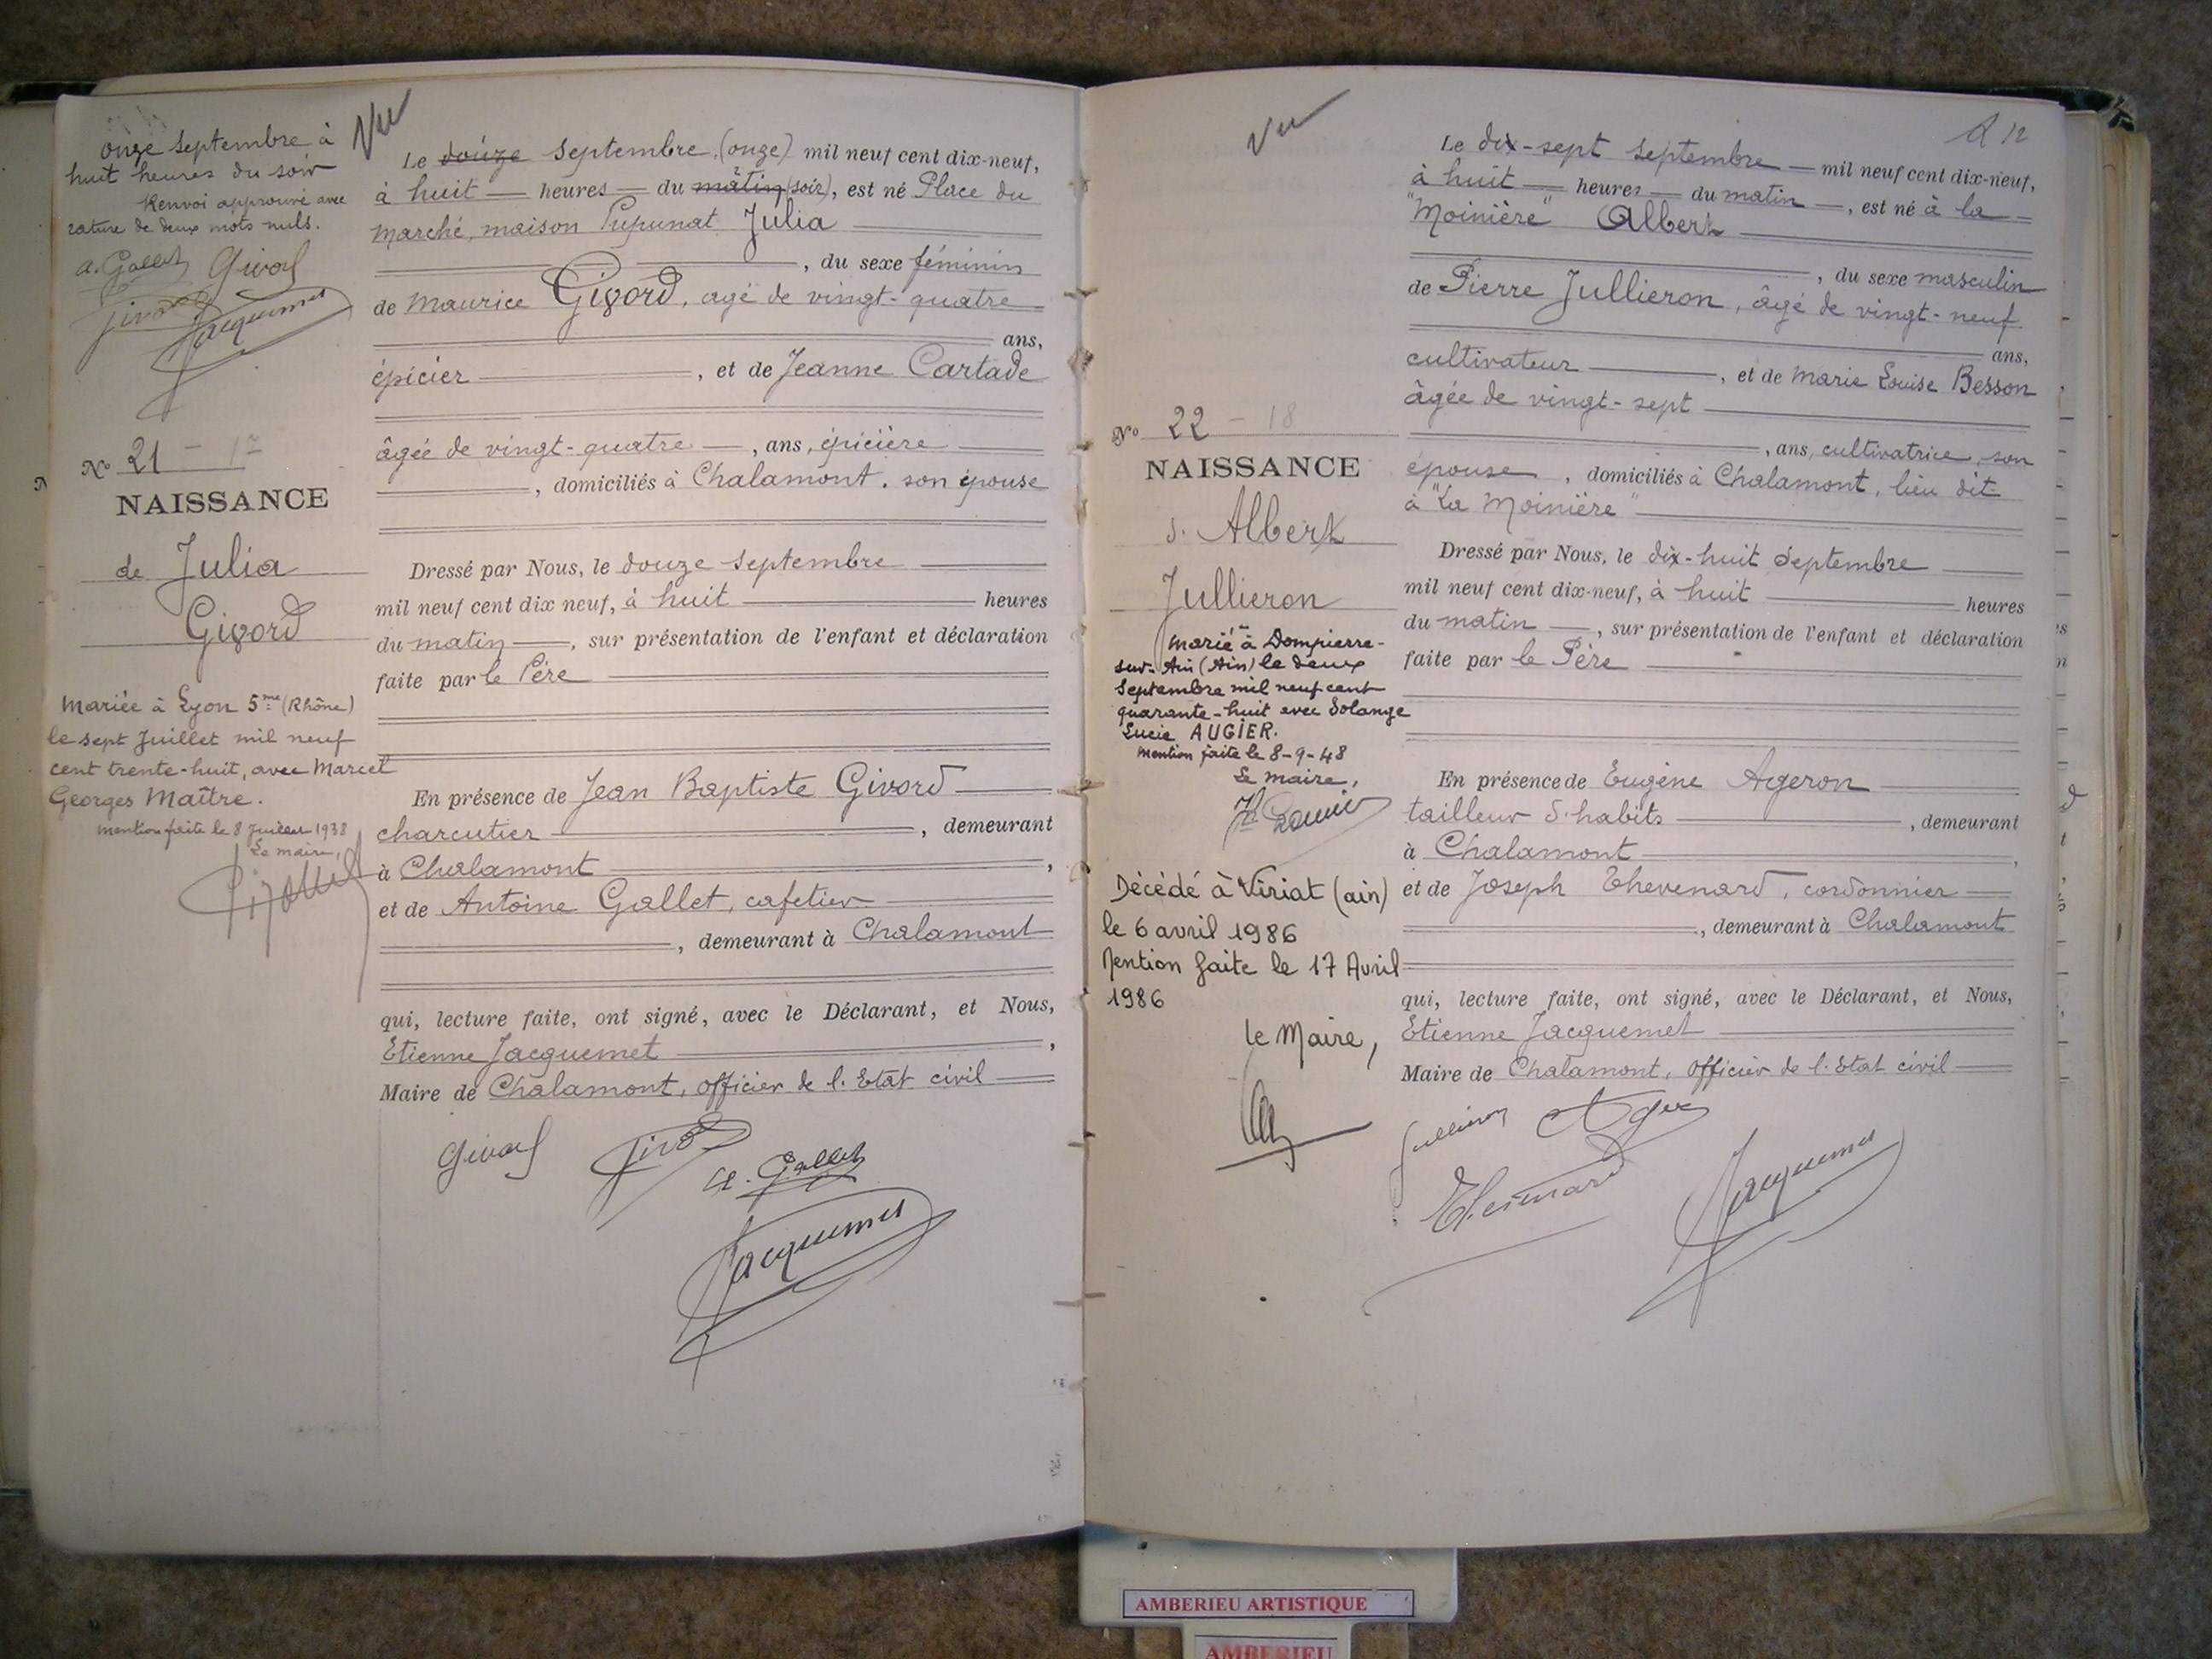 onze septembre à
huit heures du soir
Renvoi approuvé avec
rature de deux mots nuls.
a. Gallet Givord
Givord
Jacquemet
Vu
N° 21 - 17
NAISSANCE
de Julia
Givord
Mariée à Lyon 5me (Rhône)
le sept Juillet mil neuf
cent trente-huit, avec Marcel
Georges Maître.
mention faite le 8 Juillet 1938
Le maire,
Le douze septembre (onze) mil neuf cent dix-neuf,
à huit heures du matin (soir), est né Place du
Marché, maison Pupunat Julia
, du sexe féminin
de Maurice Givord, agé de vingt-quatre
ans,
épicier , et de Jeanne Cartade
âgée de vingt-quatre , ans, épicière
, domiciliés à Chalamont. son épouse
Dressé par Nous, le douze septembre
mil neuf cent dix neuf, à huit heures
du matin , sur présentation de l'enfant et déclaration
faite par le Père
En présence de Jean Baptiste Givord
charcutier , demeurant
à Chalamont ,
et de Antoine Gallet, cafetier
, demeurant à Chalamont
qui, lecture faite, ont signé, avec le Déclarant, et Nous,
Etienne Jacquemet ,
Maire de Chalamont, officier de l'Etat civil
Givord Givord
a. Gallet
Jacquemet
Vu
N° 22 - 18
NAISSANCE
d'Albert
Jullieron
Marié à Dompierre-
sur-Ain (Ain) le deux
Septembre mil neuf cent
quarante-huit avec Solange
Lucie AUGIER.
Mention faite le 8-9-48
Le maire,
Décédé à Viriat (ain)
le 6 avril 1986
Mention faite le 17 Avril
1986
le Maire,
12
Le dix-sept septembre mil neuf cent dix-neuf,
à huit heures du matin , est né à la
"Moinière" Albert
, du sexe masculin
de Pierre Jullieron, âgé de vingt-neuf
ans,
cultivateur , et de Marie Louise Besson
âgée de vingt-sept
, ans, cultivatrice, son
épouse , domiciliés à Chalamont, lieu dit
à "La Moinière"
Dressé par Nous, le dix-huit septembre
mil neuf cent dix-neuf, à huit heures
du matin , sur présentation de l'enfant et déclaration
faite par le Père
En présence de Eugène Ageron
tailleur d'habits , demeurant
à Chalamont ,
et de Joseph Thevenard, cordonnier
, demeurant à Chalamont
qui, lecture faite, ont signé, avec le Déclarant, et Nous,
Etienne Jacquemet
Maire de Chalamont, officier de l'Etat civil
Jullieron Ageron
Thevenard
Jacquemet
AMBERIEU ARTISTIQUE
AMBERIEU